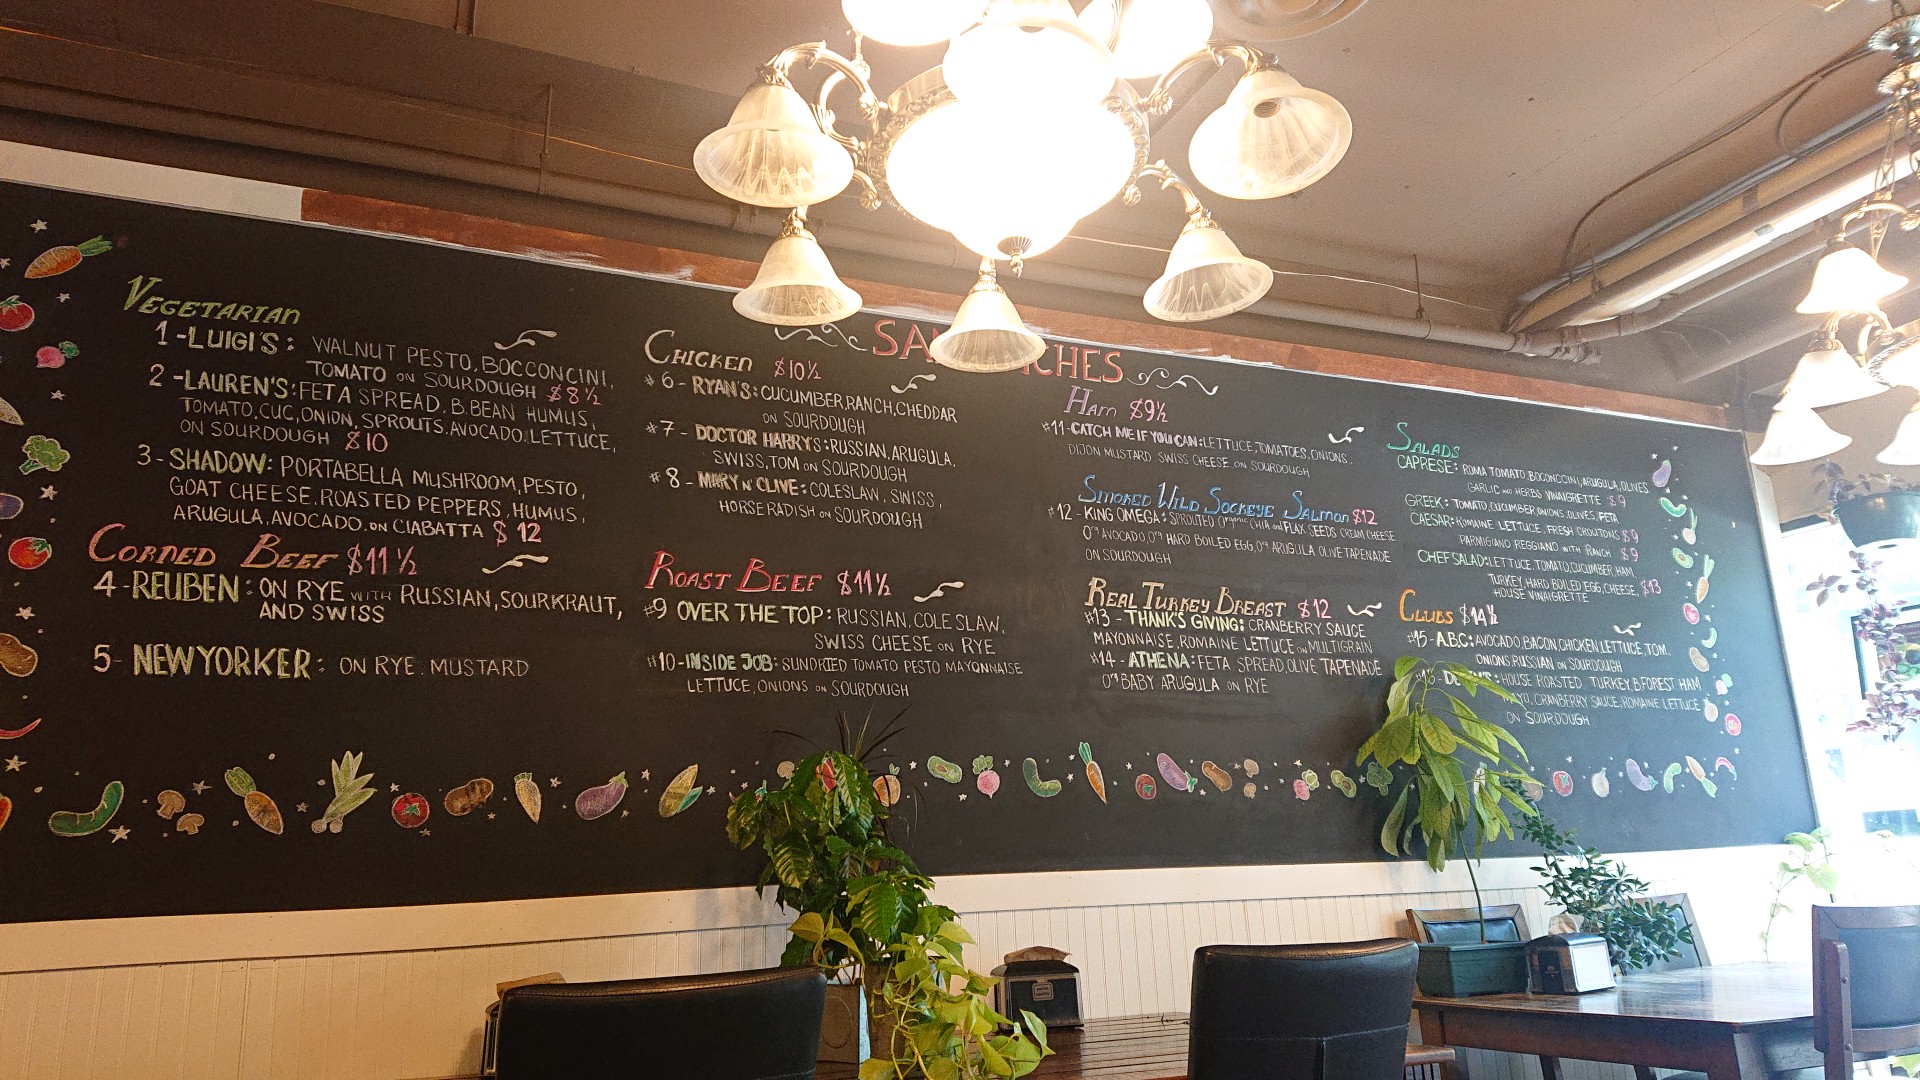 VEGETARIAN
1-LUIGI'S: WALNUT PESTO, BOCCONCINI,
TOMATO ON SOURDOUGH $8½
2-LAUREN'S: FETA SPREAD, B.BEAN HUMUS,
TOMATO, CUC, ONION, SPROUTS, AVOCADO, LETTUCE,
ON SOURDOUGH $10
3-SHADOW: PORTABELLA MUSHROOM, PESTO,
GOAT CHEESE, ROASTED PEPPERS, HUMUS,
ARUGULA, AVOCADO. ON CIABATTA $12
CORNED BEEF $11½
4-REUBEN: ON RYE WITH RUSSIAN, SOURKRAUT,
AND SWISS
5-NEWYORKER: ON RYE. MUSTARD
CHICKEN $10½
#6-RYAN'S: CUCUMBER, RANCH, CHEDDAR
ON SOURDOUGH
#7-DOCTOR HARRY'S: RUSSIAN, ARUGULA,
SWISS, TOM ON SOURDOUGH
#8-MARY N' CLIVE: COLESLAW, SWISS,
HORSERADISH ON SOURDOUGH
ROAST BEEF $11½
#9 OVER THE TOP: RUSSIAN, COLE SLAW,
SWISS CHEESE ON RYE
#10-INSIDE JOB: SUNDRIED TOMATO PESTO MAYONNAISE
LETTUCE, ONIONS ON SOURDOUGH
HAM $9½
#11-CATCH ME IF YOU CAN: LETTUCE, TOMATOES, ONIONS,
DIJON MUSTARD SWISS CHEESE ON SOURDOUGH
SMOKED WILD SOCKEYE SALMON $12
#12-KING OMEGA: SPROUTED Organic CHIA and FLAX SEEDS CREAM CHEESE
AVOCADO, HARD BOILED EGG, ARUGULA, OLIVE TAPENADE
ON SOURDOUGH
REAL TURKEY BREAST $12
#13-THANK'S GIVING: CRANBERRY SAUCE
MAYONNAISE, ROMAINE LETTUCE ON MULTIGRAIN
#14-ATHENA: FETA SPREAD, OLIVE TAPENADE
BABY ARUGULA ON RYE
SALADS
CAPRESE: ROMA TOMATO, BOCONCCINI, ARUGULA, OLIVES
GARLIC AND HERBS VINAIGRETTE $9
GREEK: TOMATO, CUCUMBER, ONIONS, OLIVES, FETA
$9
CAESAR: ROMAINE LETTUCE, FRESH CROUTONS
PARMIGIANO REGGIANO WITH RANCH $9
CHEF SALAD: LETTUCE, TOMATO, CUCUMBER, HAM,
TURKEY, HARD BOILED EGG, CHEESE, $13
HOUSE VINAIGRETTE
CLUBS $14½
#15-A.B.C: AVOCADO, BACON, CHICKEN, LETTUCE, TOM,
ONIONS, RUSSIAN ON SOURDOUGH
HOUSE ROASTED TURKEY, B.FOREST HAM
MAYO, CRANBERRY SAUCE, ROMAINE LETTUCE
ON SOURDOUGH